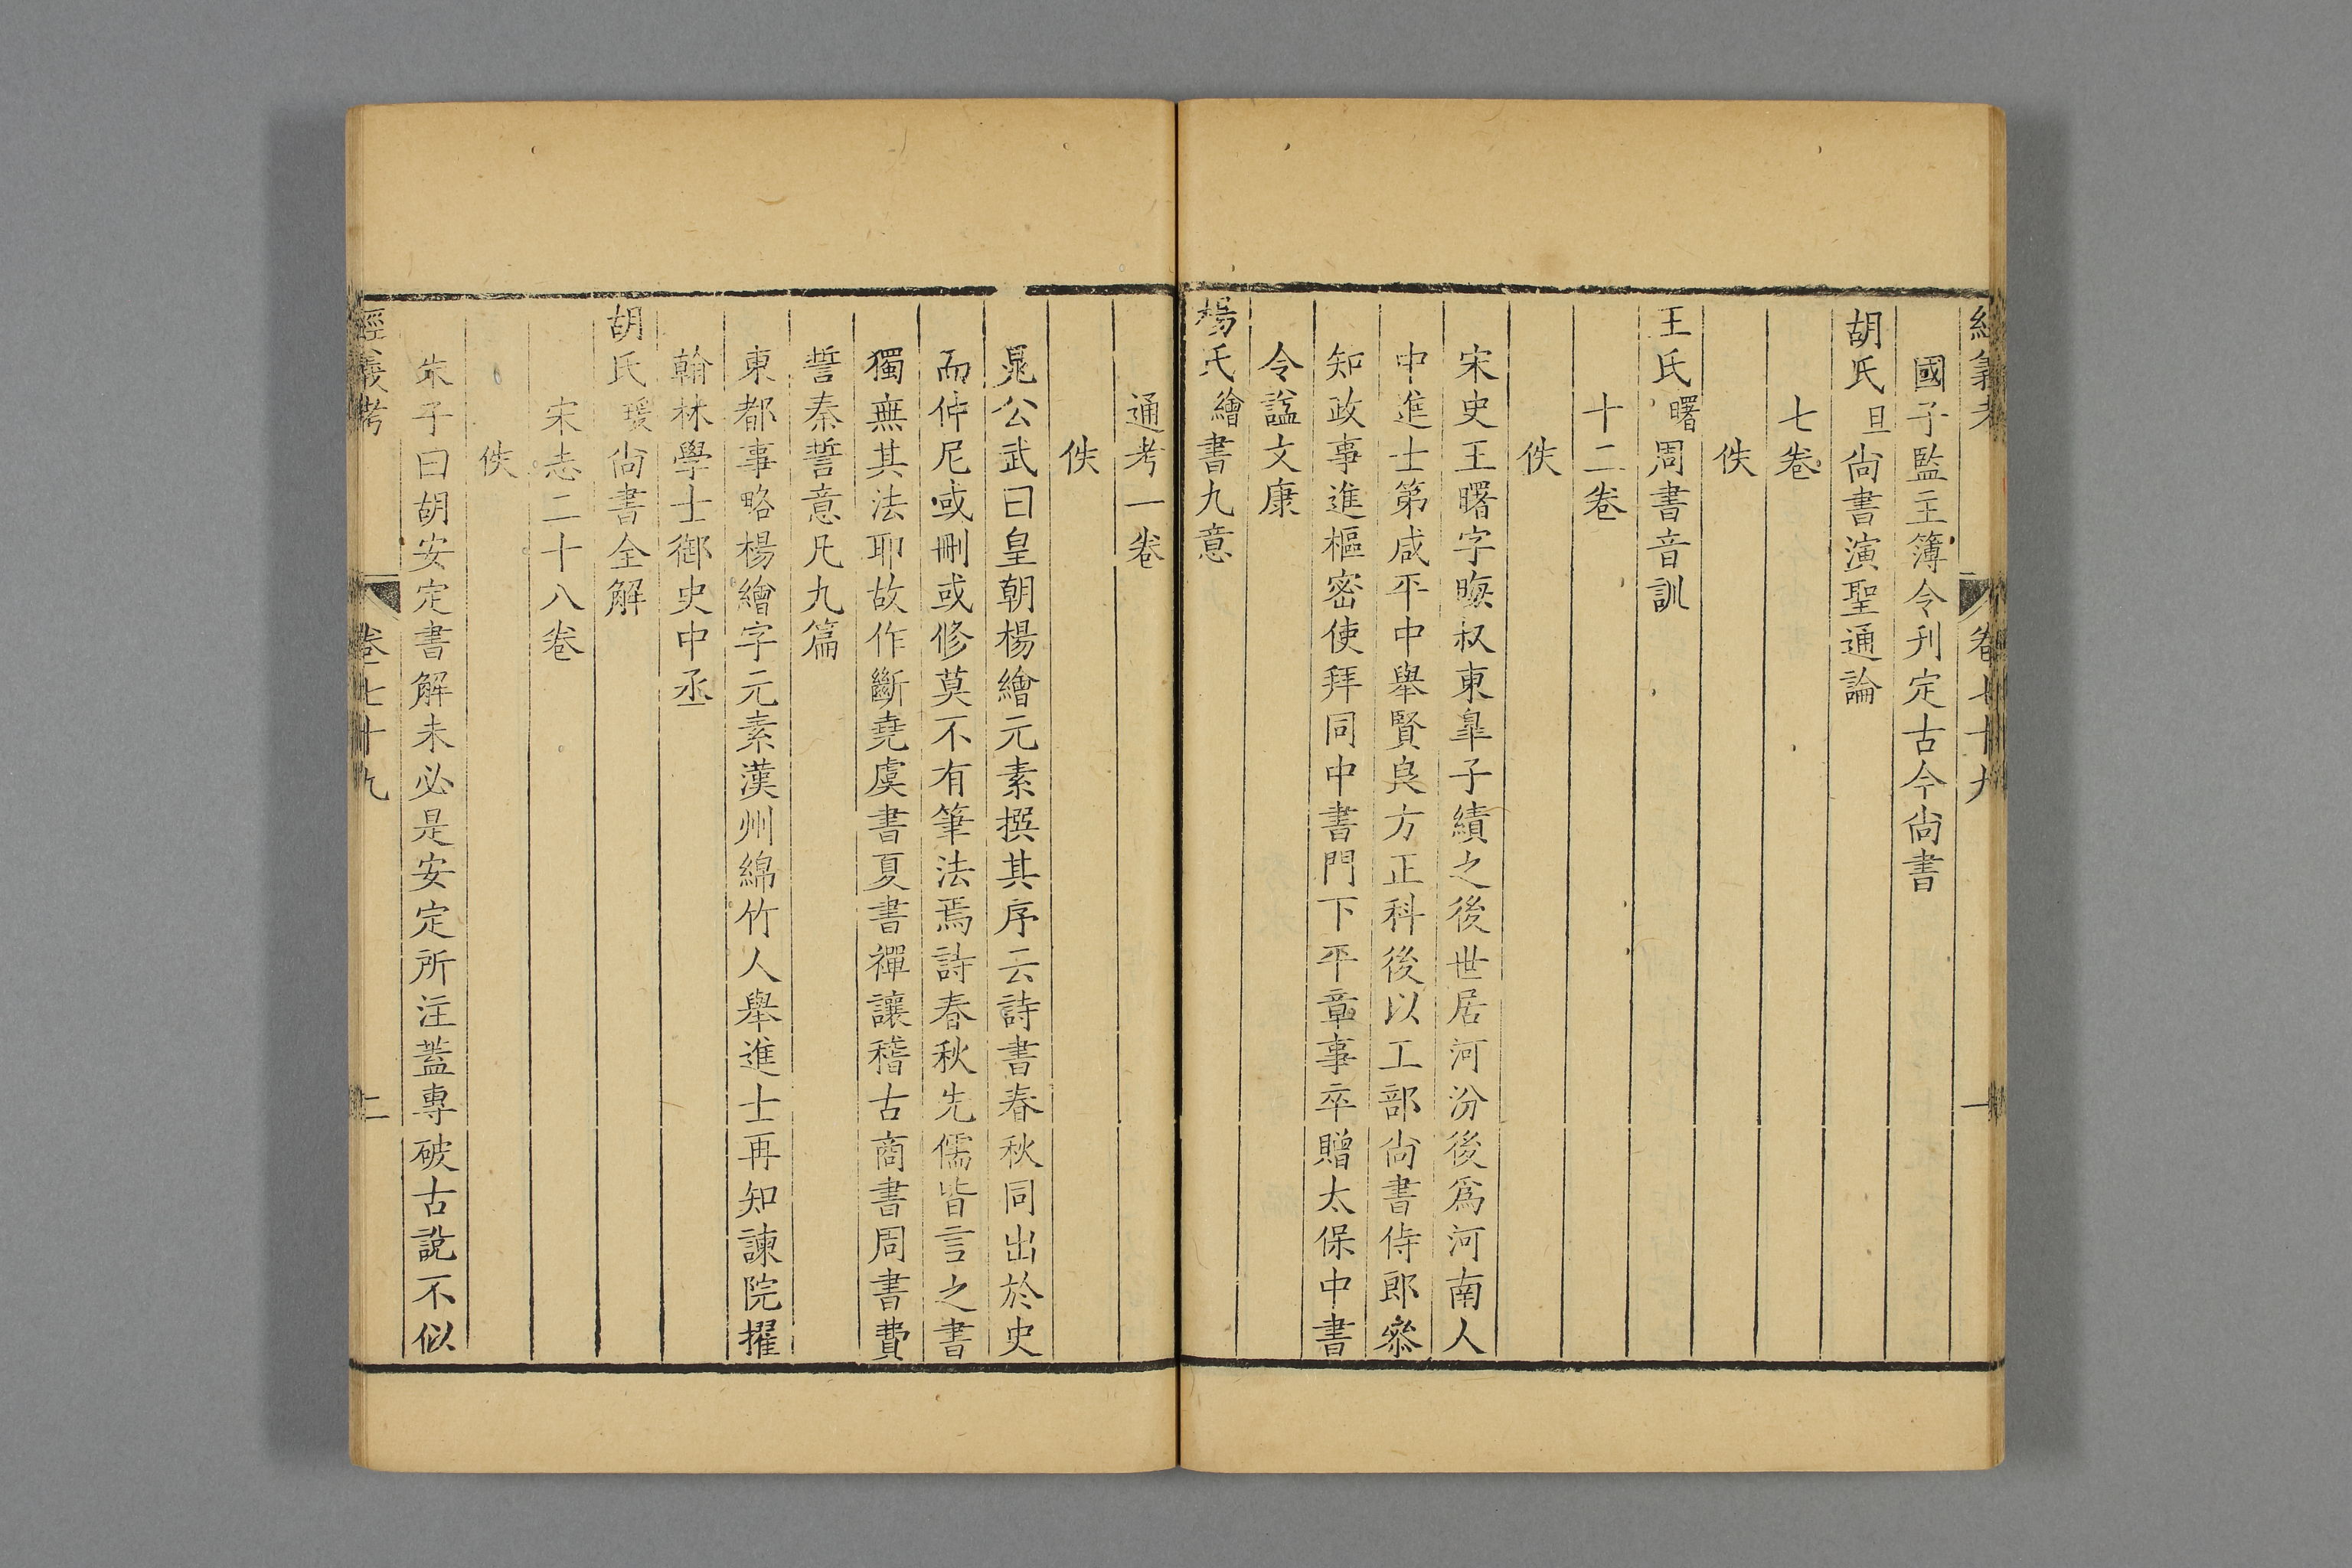 經義考 卷七十九 一
國子監主簿令刊定古今尚書
胡氏旦尚書演聖通論
七卷
佚
王氏曙周書音訓
十二卷
佚
宋史王曙字晦叔東臯子績之後世居河汾後爲河南人
中進士第咸平中舉賢良方正科後以工部尚書侍郎叅
知政事進樞密使拜同中書門下平章事卒贈太保中書
令諡文康
楊氏繪書九意
通考一卷
佚
晁公武曰皇朝楊繪元素撰其序云詩書春秋同出於史
而仲尼或刪或修莫不有筆法焉詩春秋先儒皆言之書
獨無其法耶故作斷堯虞書夏書禪讓稽古商書周書費
誓秦誓意凡九篇
東都事略楊繪字元素漢州綿竹人舉進士再知諫院擢
翰林學士御史中丞
胡氏瑗尚書全解
宋志二十八卷
佚
朱子曰胡安定書解未必是安定所注蓋專破古說不似
經義考 卷七十九 二